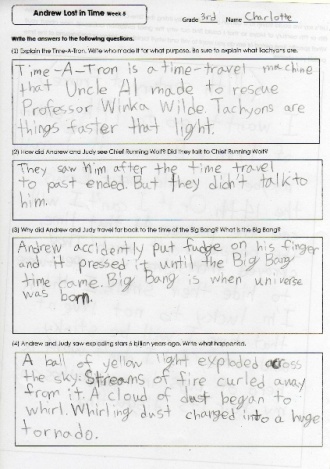 Andrew Lost in Time Week 5
Grade 3rd Name Charlotte
Write the answers to the following questions.
(1) Explain the Time-A-Tron. Write who made it for what purpose. Be sure to explain what Tachyons are.
Time-A-Tron is a time-travel machine
that Uncle Al made to rescue
Professor Winka Wilde. Tachyons are
things faster that light.
(2) How did Andrew and Judy see Chief Running Wolf? Did they talk to Chief Running Wolf?
They saw him after the time travel
to past ended. But they didn't talk to
him.
(3) Why did Andrew and Judy travel far back to the time of the Big Bang? What is the Big Bang?
Andrew accidently put fudge on his finger
and it pressed it until the Big Bang
time came. Big Bang is when universe
was born.
(4) Andrew and Judy saw exploding stars 6 billion years ago. Write what happened.
A ball of yellow light exploded across
the sky. Streams of fire curled away
from it. A cloud of dust began to
whirl. Whirling dust changed into a huge
tornado.